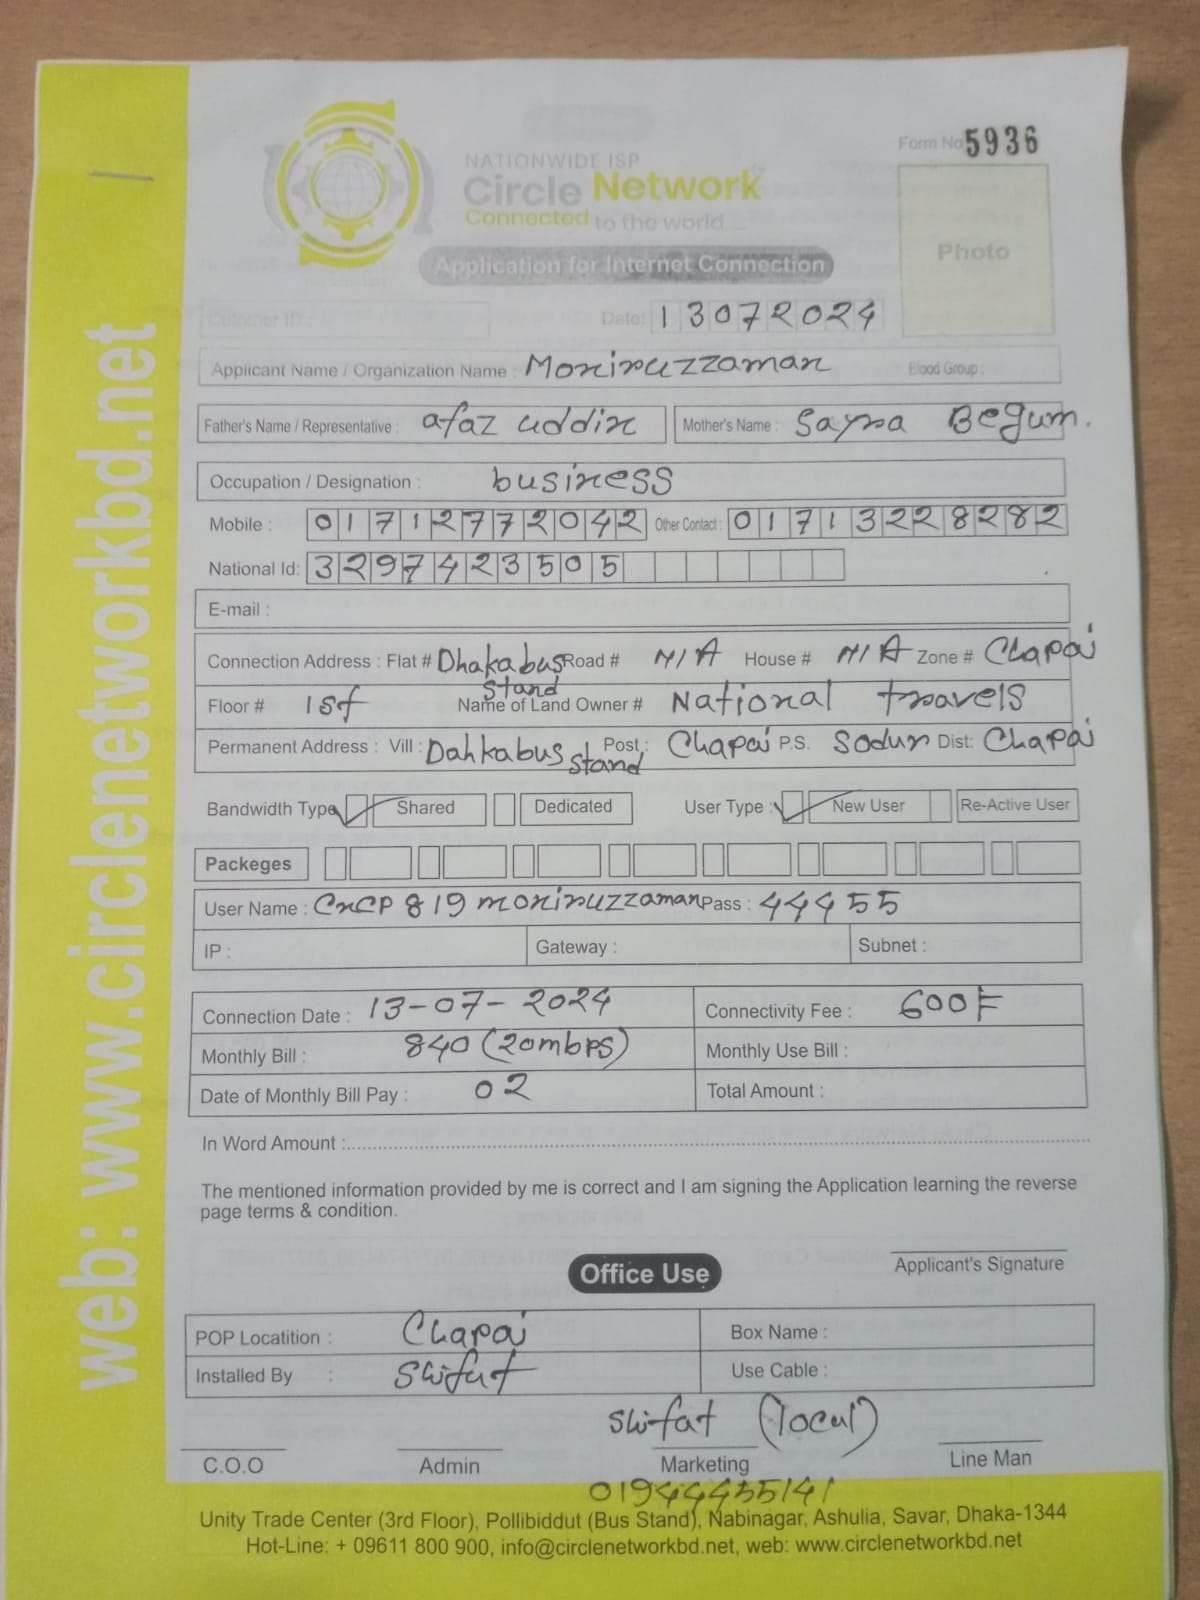 Form No 5936
NATIONWIDE ISP
Circle Network
Connected to the world...
Application for Internet Connection
Photo
Customer ID :
Date: 13072024
Applicant Name / Organization Name : Moniruzzaman Blood Group :
Father's Name / Representative : afaz uddin Mother's Name : Sayra Begum.
Occupation / Designation : business
Mobile : 01712772042 Other Contact : 01713228282
National Id: 3297423505
E-mail :
Connection Address : Flat # Dhakabus Stand Road # N/A House # N/A Zone # Chapai
Floor # 1st Name of Land Owner # National travels
Permanent Address : Vill : Dahkabus Stand Post : Chapai P.S. Sodur Dist: Chapai
Bandwidth Type Shared Dedicated User Type : New User Re-Active User
Packeges
User Name : CnCP 819 moniruzzaman Pass : 44455
IP : Gateway : Subnet :
Connection Date : 13-07-2024 Connectivity Fee : 600
Monthly Bill : 840 (20mbps) Monthly Use Bill :
Date of Monthly Bill Pay : 02 Total Amount :
In Word Amount :
The mentioned information provided by me is correct and I am signing the Application learning the reverse
page terms & condition.
Applicant's Signature
Office Use
POP Locatition : Chapai Box Name :
Installed By : Shifat Use Cable :
Shifat (local)
C.O.O Admin Marketing Line Man
01944455141
Unity Trade Center (3rd Floor), Pollibiddut (Bus Stand), Nabinagar, Ashulia, Savar, Dhaka-1344
Hot-Line: + 09611 800 900, info@circlenetworkbd.net, web: www.circlenetworkbd.net
web: www.circlenetworkbd.net